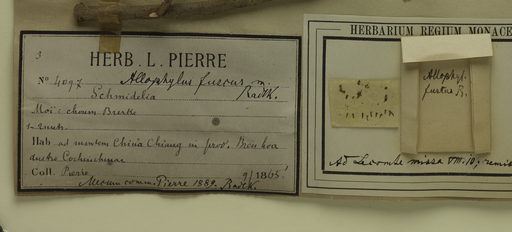 3
HERB. L. PIERRE
No 4097 Allophylus fuscus m.
Schmidelia Radlk.
Moï: choum
Hab. ad montem Chiua Chiang in prov. Bien hoa
austro Cochinchinae
Coll. Pierre 9/1865
Mecum comm. Pierre 1889. Radlk.
HERBARIUM REGIUM MONACE
Allophyl.
fuscus R.
Ad Lecomte missa VIII.10, remis